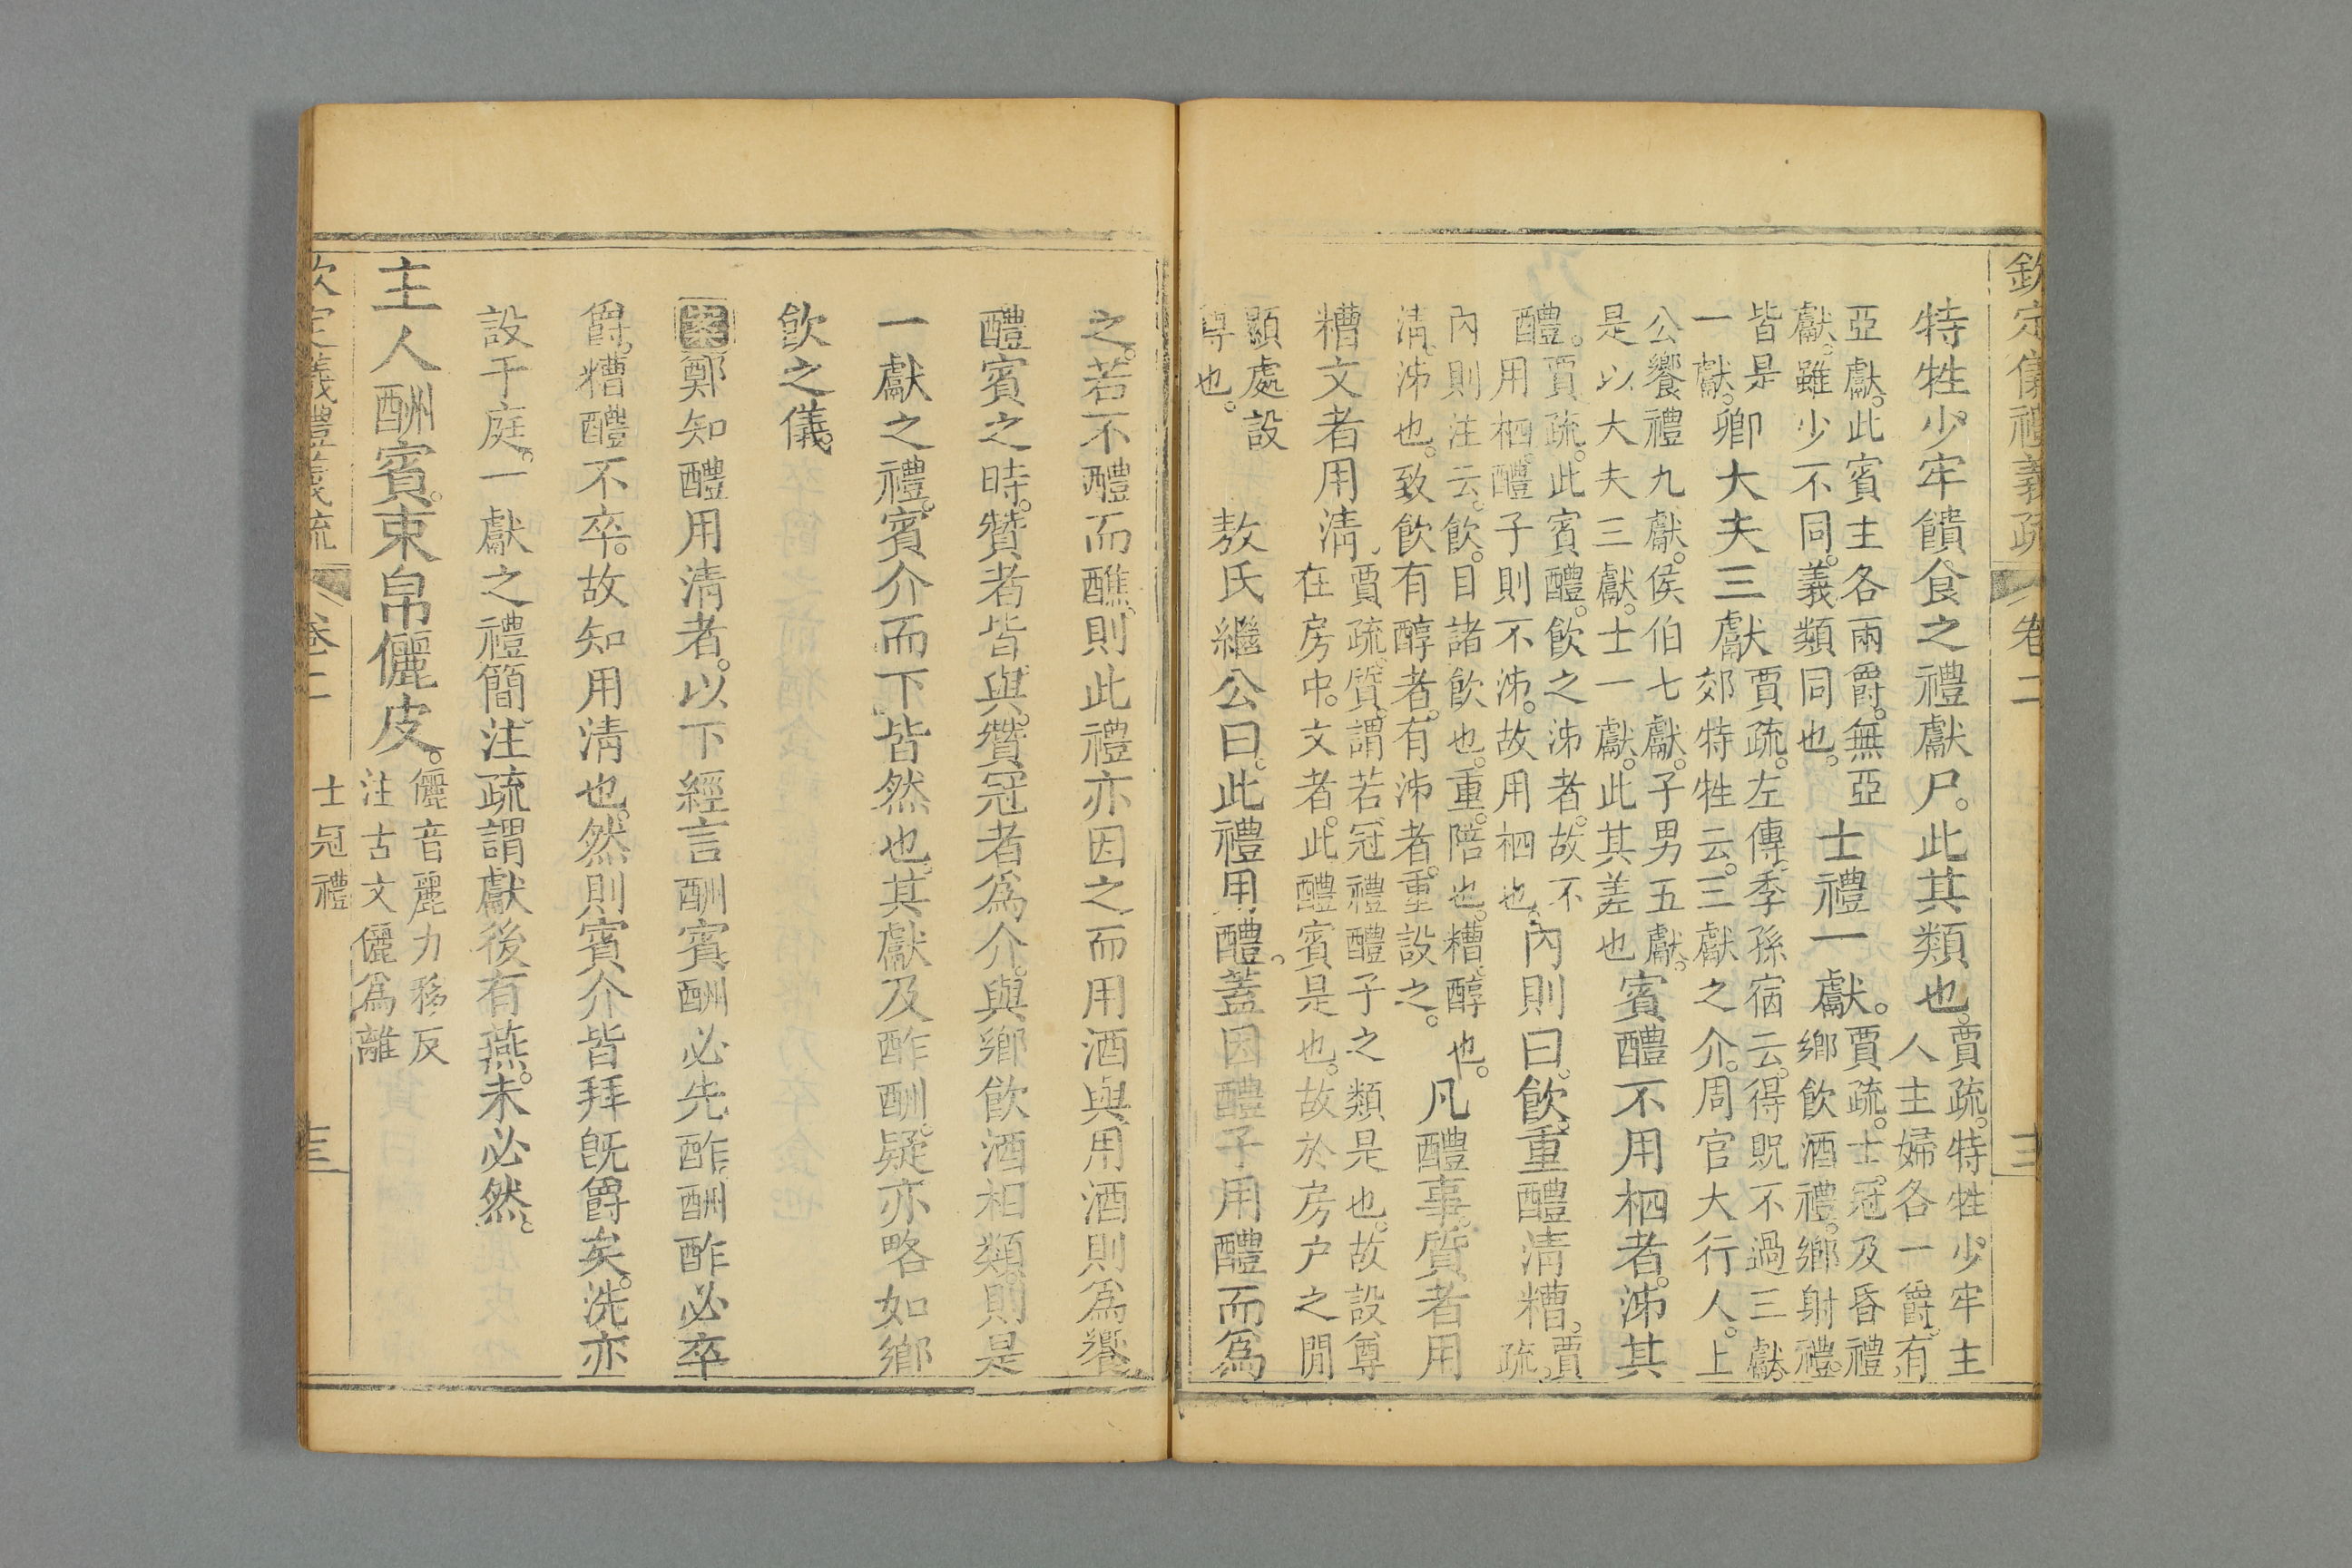 欽定儀禮義疏 卷二
特牲少牢饋食之禮獻尸。此其類也。賈疏。特牲少牢主
人主婦各一爵。有
亞獻。此賓主各兩爵。無亞
獻。雖少不同。義類同也。士禮一獻。賈疏。士冠及昏禮
鄉飲酒禮。鄉射禮。
皆是
一獻。卿大夫三獻賈疏。左傳、季孫宿云。得貺不過三獻。
郊特牲云。三獻之介。周官大行人。上
公饗禮九獻。侯伯七獻。子男五獻。
是以大夫三獻。士一獻。此其差也賓醴不用柶者。泲其
醴。賈疏。此賓醴。飲之泲者。故不
用柶。醴子則不泲。故用柶也。內則曰。飲重醴清糟。賈
疏。
內則注云。飲。目諸飲也。重。陪也。糟。醇也。
清。泲也。致飲有醇者。有泲者。重設之。凡醴事。質者用
糟文者用清、賈疏。質。謂若冠禮醴子之類是也。故設尊
在房中。文者。此醴賓是也。故於房户之閒
顯處設
尊也。敖氏繼公曰。此禮用醴。蓋因醴子用醴而爲
之。若不醴而醮。則此禮亦因之而用酒與用酒則爲饗
醴賓之時。贊者皆與。贊冠者爲介。與鄉飲酒相類則是
一獻之禮。賓介而下。皆然也。其獻及酢酬。疑亦略如鄉
飲之儀。
案鄭知醴用清者。以下經言酬賓酬必先酢。酬酢必卒
爵。糟醴不卒。故知用清也。然則賓介皆拜旣爵矣。洗亦
設于庭。一獻之禮簡。注疏謂獻後有燕。未必然。
主人酬賓。束帛儷皮。儷音麗力移反
注古文儷爲離
欽定儀禮義疏 卷二 士冠禮